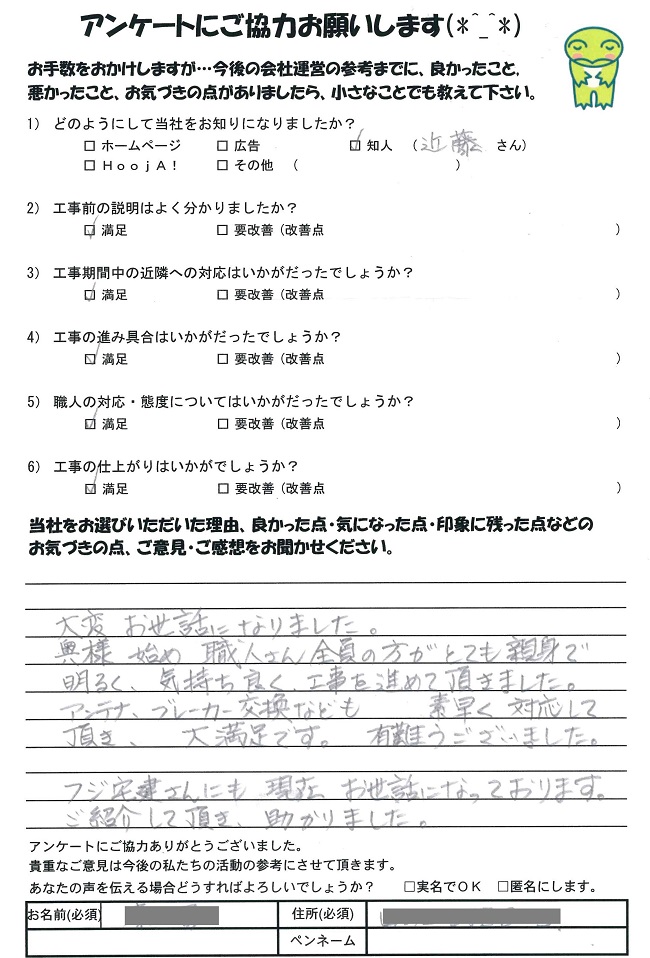 アンケートにご協力お願いします(*^_^*)
お手数をおかけしますが…今後の会社運営の参考までに、良かったこと、
悪かったこと、お気づきの点がありましたら、小さなことでも教えて下さい。
1) どのようにして当社をお知りになりましたか？
□ ホームページ □ 広告 ☑ 知人 （近藤 さん）
□ ＨｏｏｊＡ！ □ その他 （ ）
2) 工事前の説明はよく分かりましたか？
☑ 満足 □ 要改善（改善点 ）
3) 工事期間中の近隣への対応はいかがだったでしょうか？
☑ 満足 □ 要改善（改善点 ）
4) 工事の進み具合はいかがだったでしょうか？
☑ 満足 □ 要改善（改善点 ）
5) 職人の対応・態度についてはいかがだったでしょうか？
☑ 満足 □ 要改善（改善点 ）
6) 工事の仕上がりはいかがでしょうか？
☑ 満足 □ 要改善（改善点 ）
当社をお選びいただいた理由、良かった点・気になった点・印象に残った点などの
お気づきの点、ご意見・ご感想をお聞かせください。
大変 お世話になりました。
奥様 始め 職人さん全員の方がとても親身で
明るく、気持ち良く、工事を進めて頂きました。
アンテナ、ブレーカー交換なども 素早く対応して
頂き、 大満足です。 有難うございました。
フジ宅建さんにも 現在 お世話になっております。
ご紹介して頂き、助かりました。
アンケートにご協力ありがとうございました。
貴重なご意見は今後の私たちの活動の参考にさせて頂きます。
あなたの声を伝える場合どうすればよろしいでしょうか？ □実名でＯＫ □匿名にします。
お名前(必須) 住所(必須)
ペンネーム